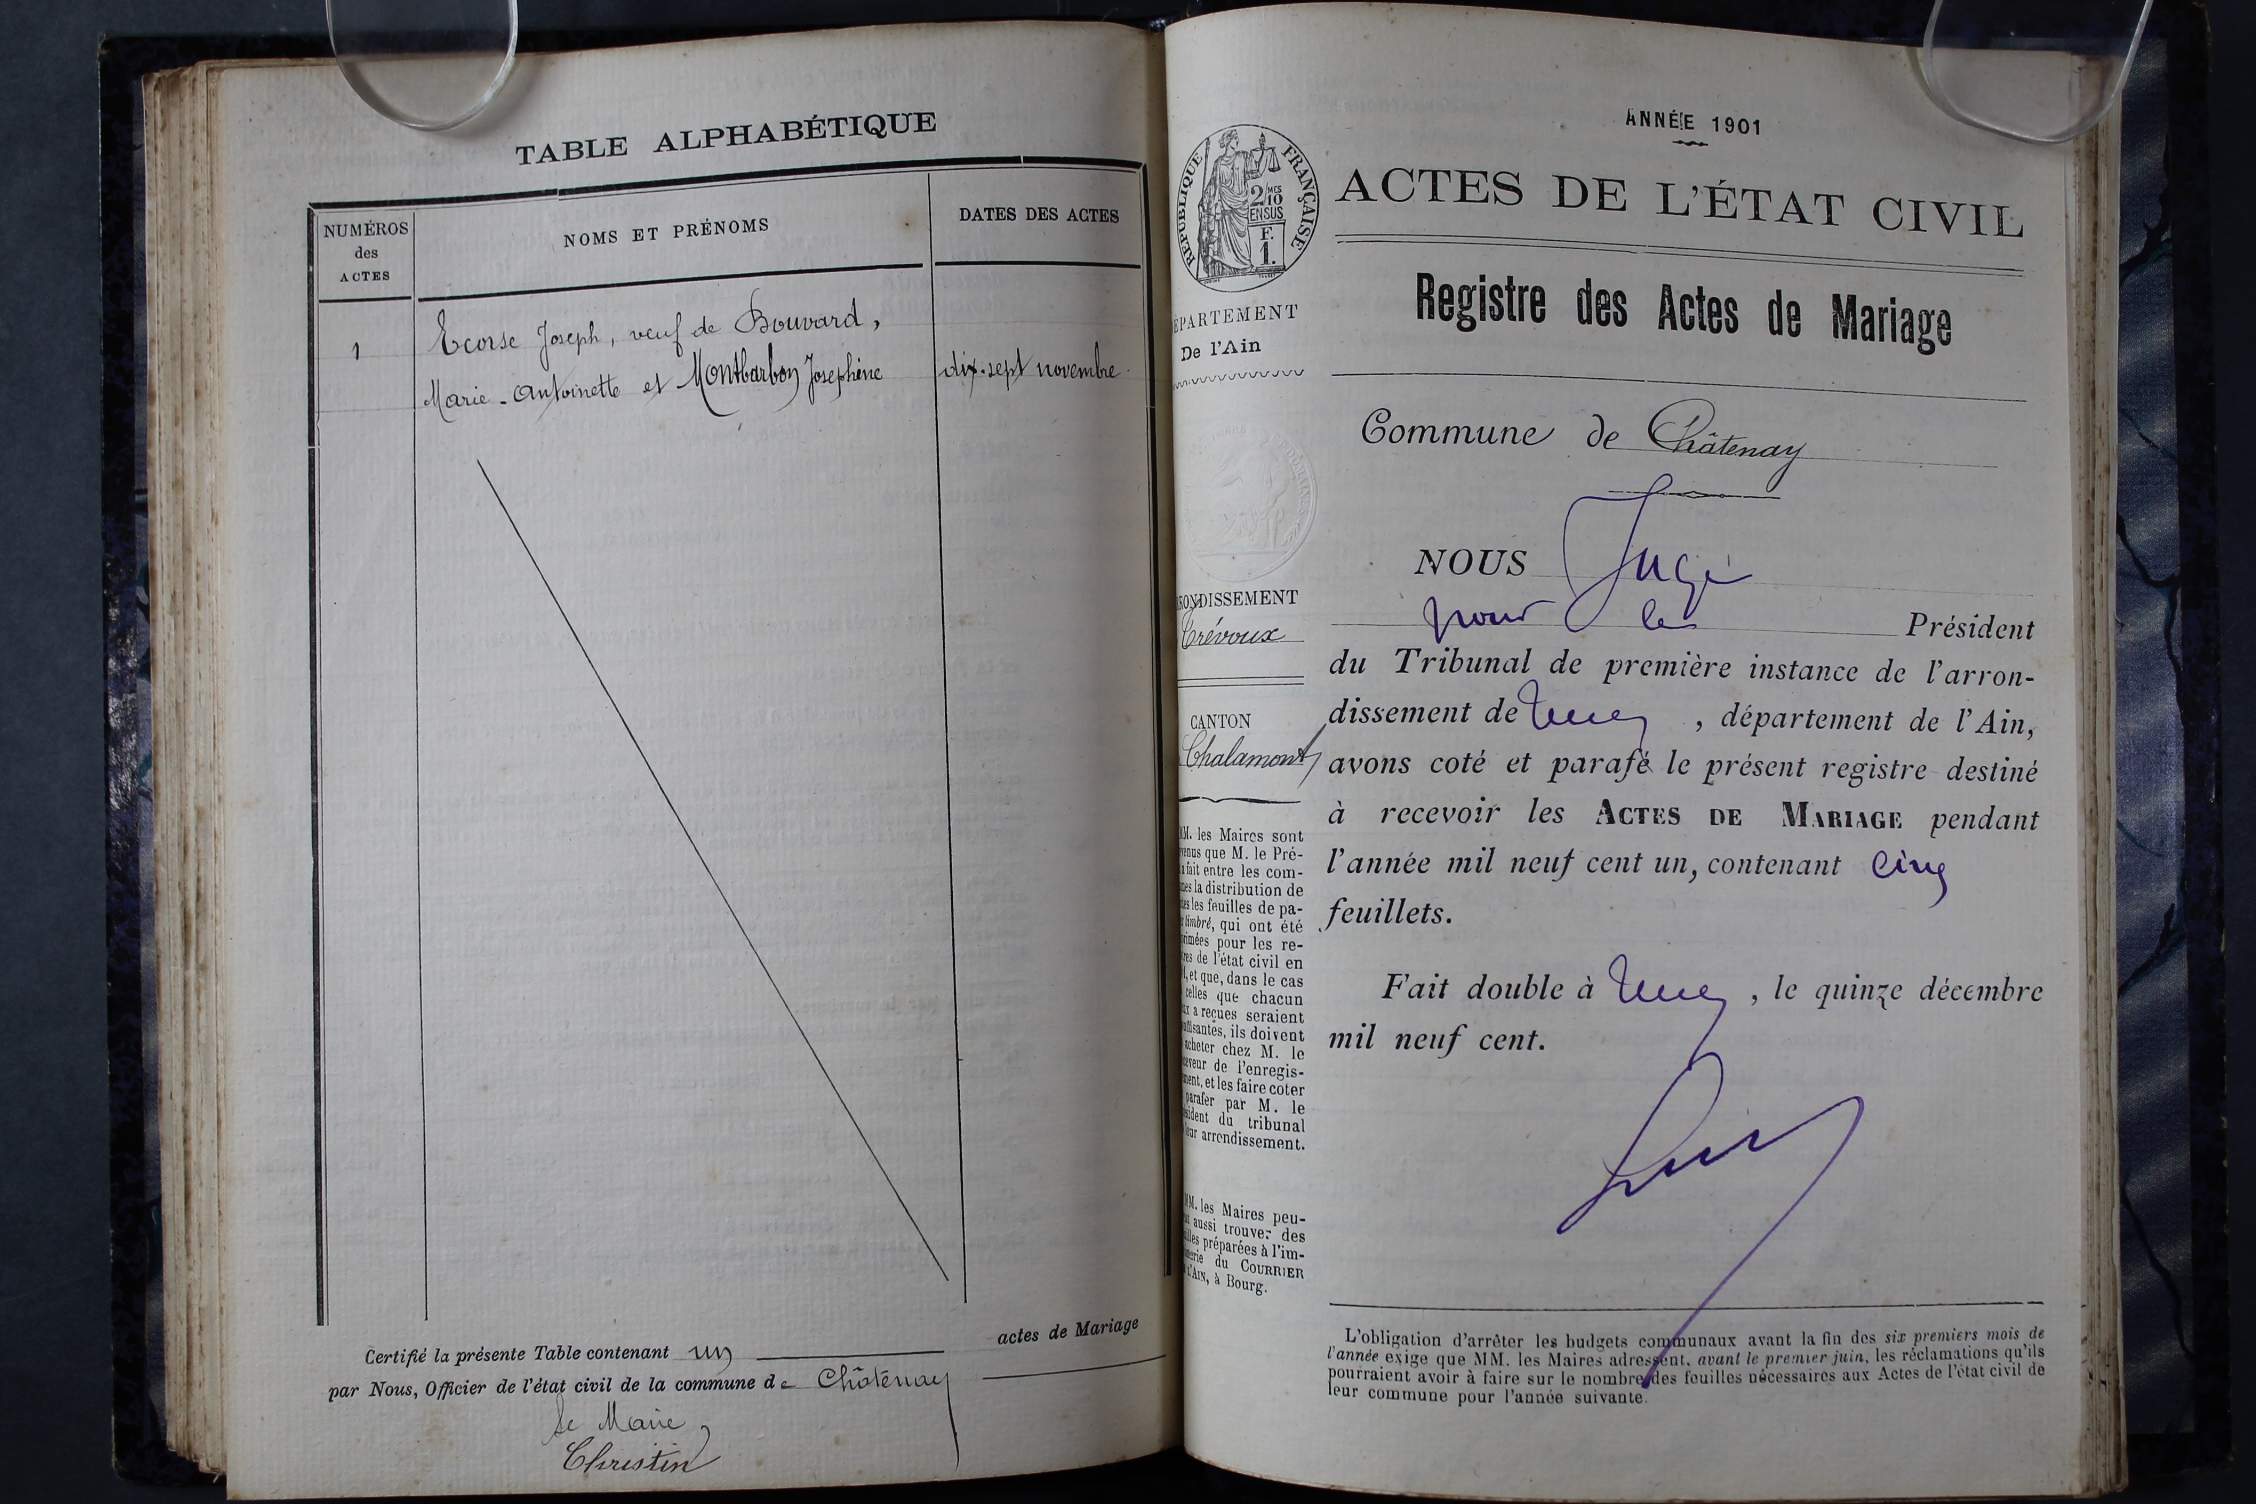 TABLE ALPHABÉTIQUE
NUMÉROS
des
ACTES
NOMS ET PRÉNOMS
DATES DES ACTES
1
Ecorse Joseph, veuf de Bouvard,
Marie-Antoinette et Montbarbon Josephine
dix-sept novembre
Certifié la présente Table contenant un
actes de Mariage
par Nous, Officier de l'état civil de la commune de Châtenay
Le Maire
Christin
RÉPUBLIQUE FRANÇAISE
2/10 MES
EN SUS
F.
1.
ÉPARTEMENT
De l'Ain
RONDISSEMENT
Trévoux
CANTON
Chalamont
MM. les Maires sont
venus que M. le Pré-
a fait entre les com-
nes la distribution de
es les feuilles de pa-
timbré, qui ont été
rimées pour les re-
res de l'état civil en
, et que, dans le cas
celles que chacun
ux a reçues seraient
uffisantes, ils doivent
acheter chez M. le
ceveur de l'enregis-
ment, et les faire coter
parafer par M. le
ésident du tribunal
eur arrondissement.
MM. les Maires peu-
aussi trouver des
illes préparées à l'im-
merie du COURRIER
L'AIN, à Bourg.
ANNÉE 1901
ACTES DE L'ÉTAT CIVIL
Registre des Actes de Mariage
Commune de Châtenay
NOUS Juge
pour le Président
du Tribunal de première instance de l'arron-
dissement de , département de l'Ain,
avons coté et parafé le présent registre destiné
à recevoir les ACTES DE MARIAGE pendant
l'année mil neuf cent un, contenant cinq
feuillets.
Fait double à , le quinze décembre
mil neuf cent.
L'obligation d'arrêter les budgets communaux avant la fin des six premiers mois de
l'année exige que MM. les Maires adressent, avant le premier juin, les réclamations qu'ils
pourraient avoir à faire sur le nombre des feuilles nécessaires aux Actes de l'état civil de
leur commune pour l'année suivante.